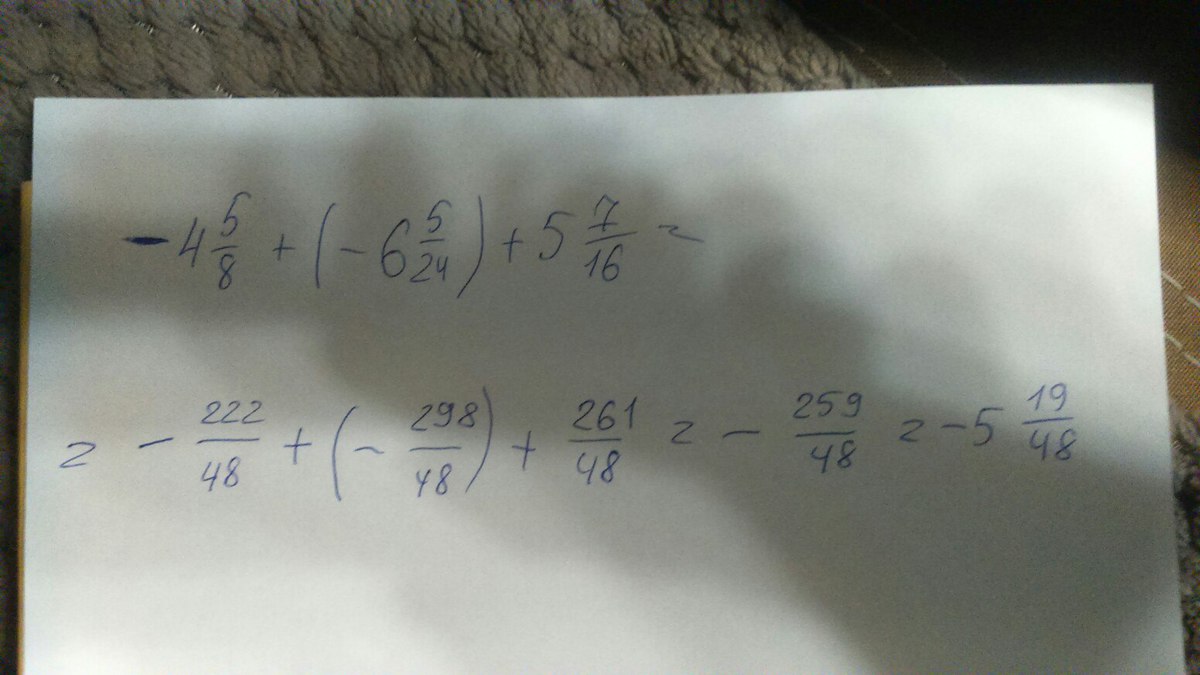 - 4 5/8 + (- 6 5/24) + 5 7/16 =
= - 222/48 + (- 298/48) + 261/48 = - 259/48 = - 5 19/48